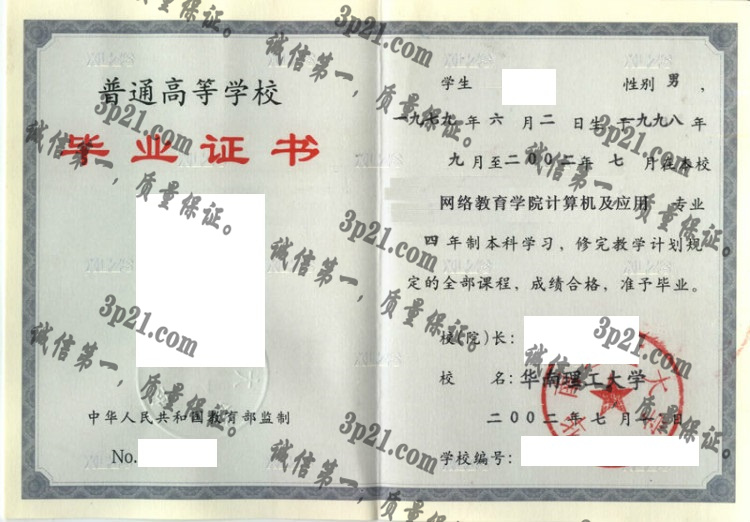 普通高等学校
毕业证书
中华人民共和国教育部监制
No.
学生 性别 男 ，
一九七九年 六 月 二 日生 一九九八 年
九 月至二00二年 七 月在本校
网络教育学院计算机及应用 专业
四 年制本科学习，修完教学计划规
定的全部课程，成绩合格，准予毕业。
校(院)长：
校 名：华南理工大学
二00二年七月一日
学校编号：
3p21.com
诚信第一，质量保证。
3p21.com
诚信第一，质量保证。
3p21.com
诚信第一，质量保证。
3p21.com
诚信第一，质量保证。
3p21.com
诚信第一，质量保证。
3p21.com
诚信第一，质量保证。
3p21.com
诚信第一，质量保证。